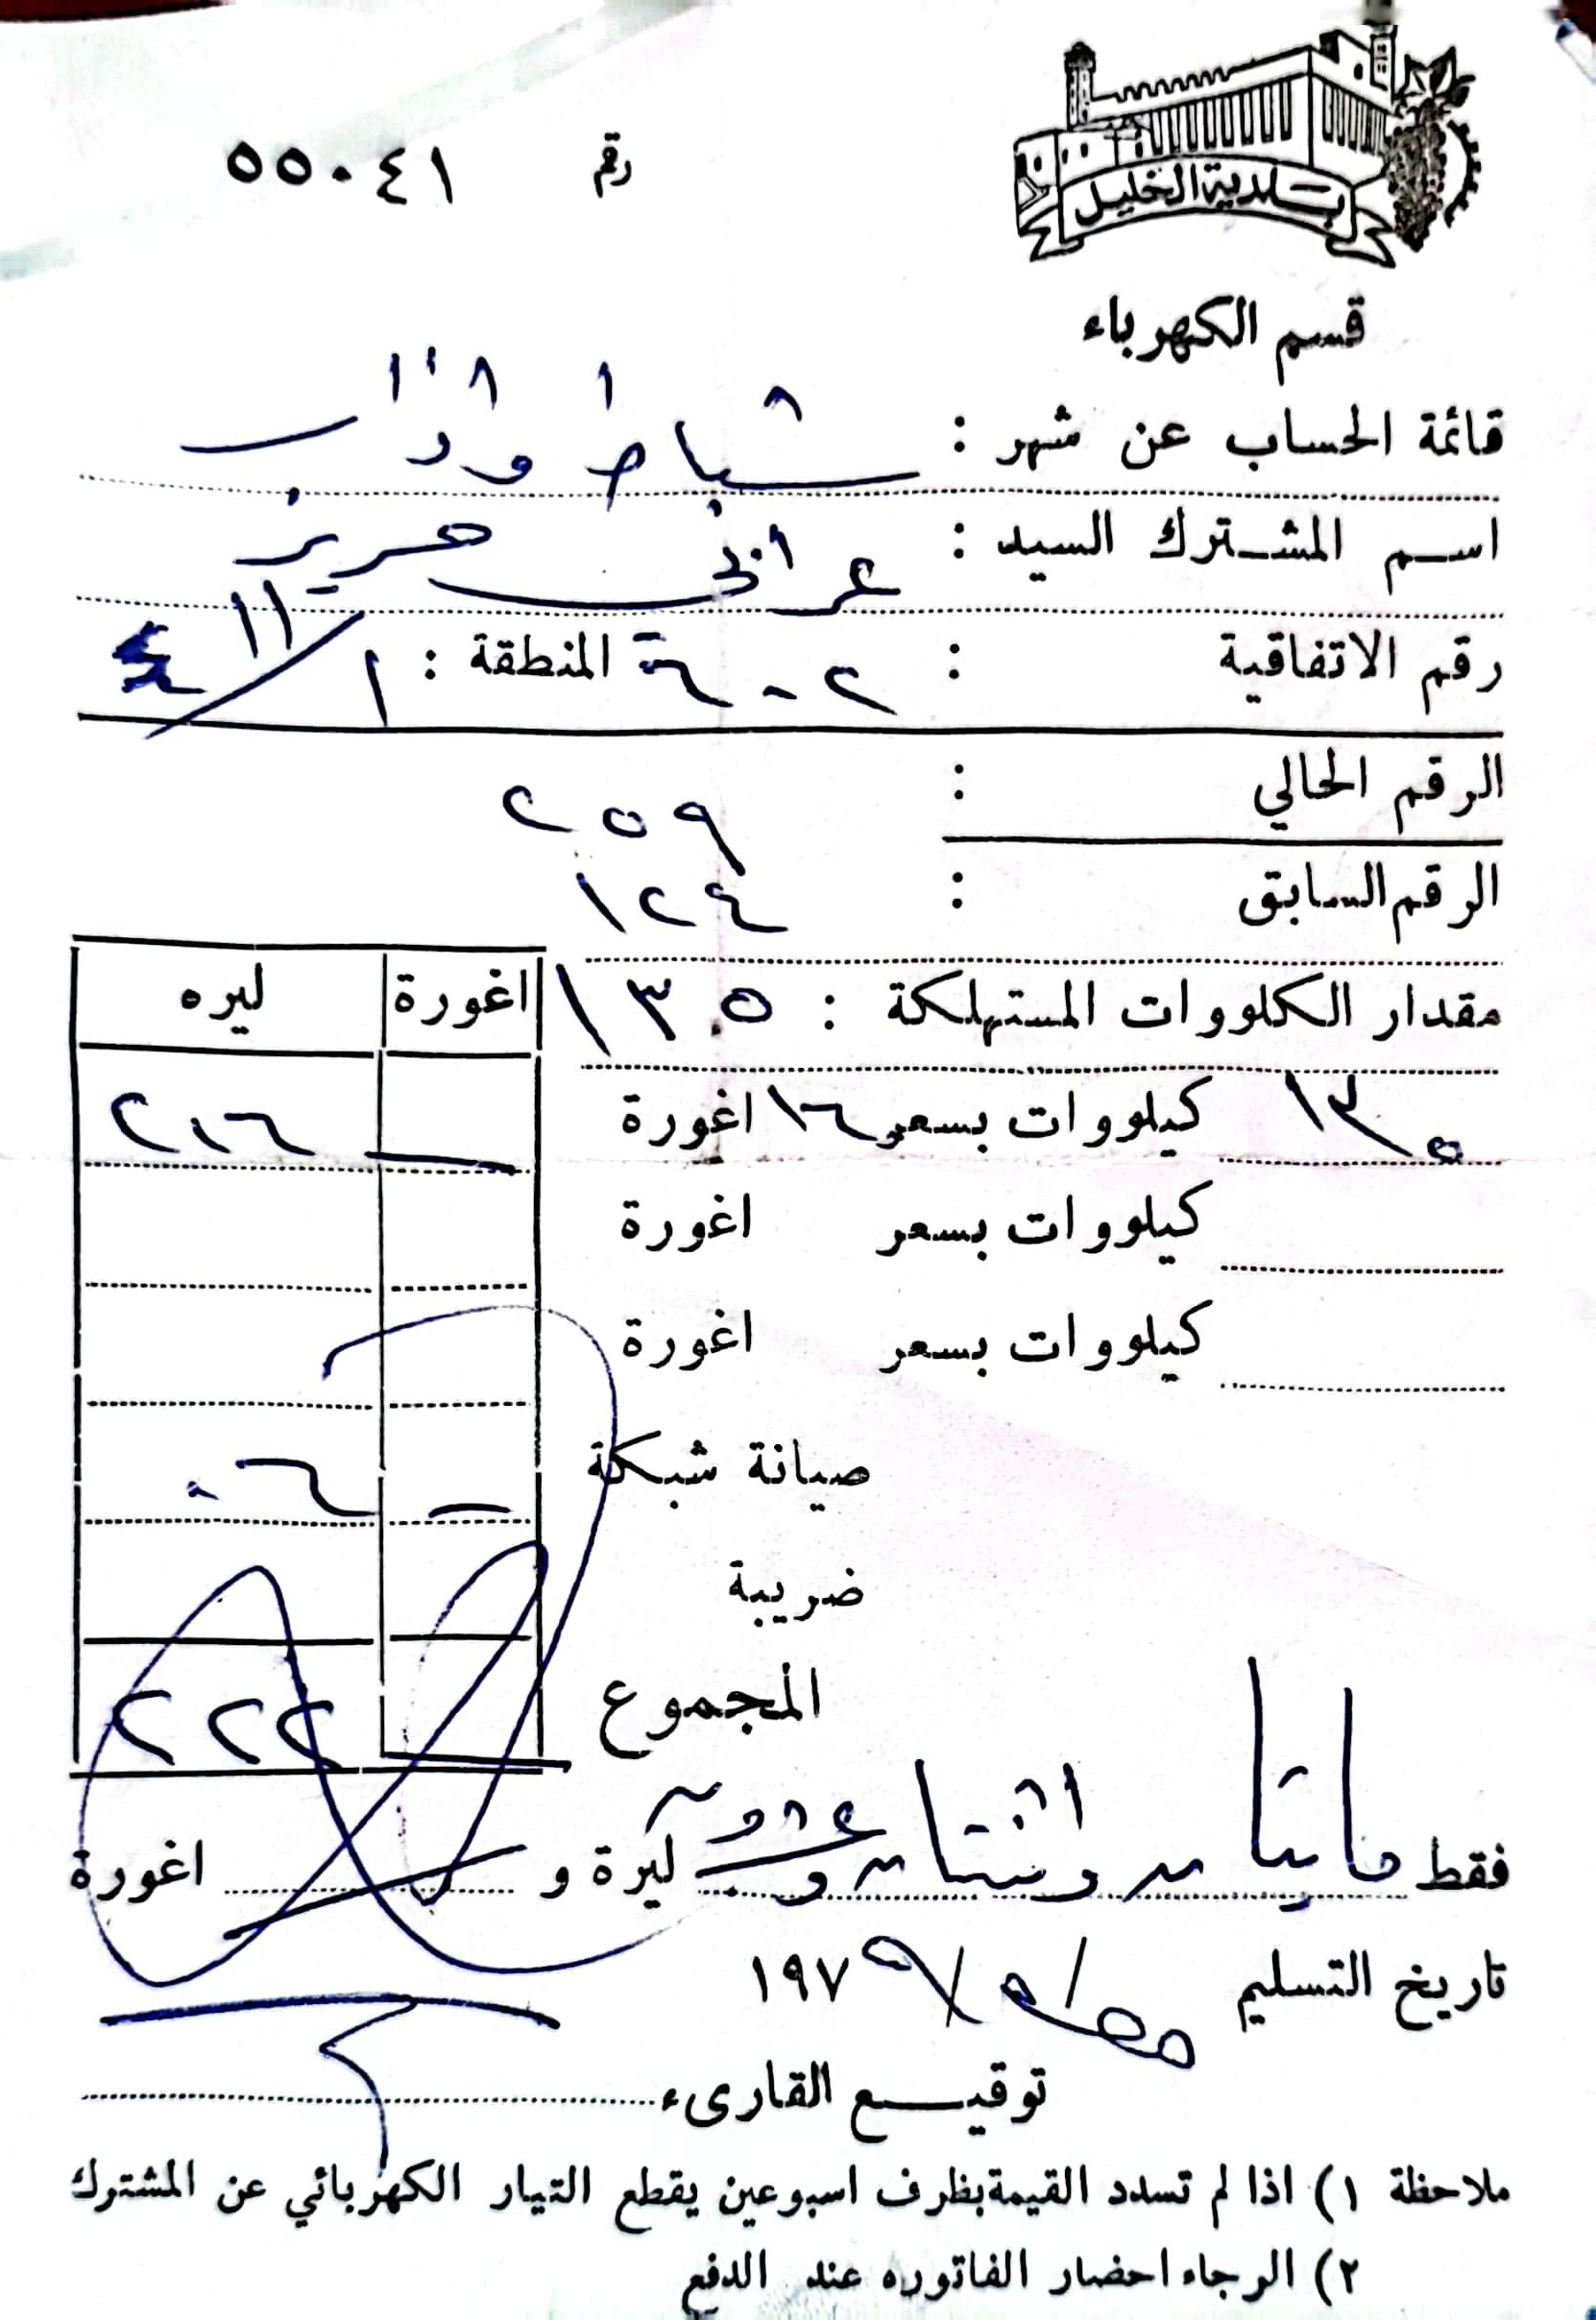 بلدية الخليل
رقم ٥٥٠٤١
قسم الكهرباء
قائمة الحساب عن شهر : شباط واذار
اسم المشترك السيد : عرافي حريز
رقم الاتفاقية : ٢٠٦ المنطقة : ١/١١
الرقم الحالي : ٢٥٩
الرقم السابق : ١٢٤
مقدار الكلووات المستهلكة : ١٣٥
اغورة ليره
١٣٥ كيلووات بسعر ١٦ اغورة — ٢١٦
كيلووات بسعر اغورة
كيلووات بسعر اغورة
صيانة شبكة — ٠٦
ضريبة
المجموع ٢٢٢
فقط مايتان واثنتان وعشرون ليرة و اغورة
تاريخ التسليم ١٩٧٩/٥/
توقيع القارىء
ملاحظة ١) اذا لم تسدد القيمة بظرف اسبوعين يقطع التيار الكهربائي عن المشترك
٢) الرجاء احضار الفاتوره عند الدفع